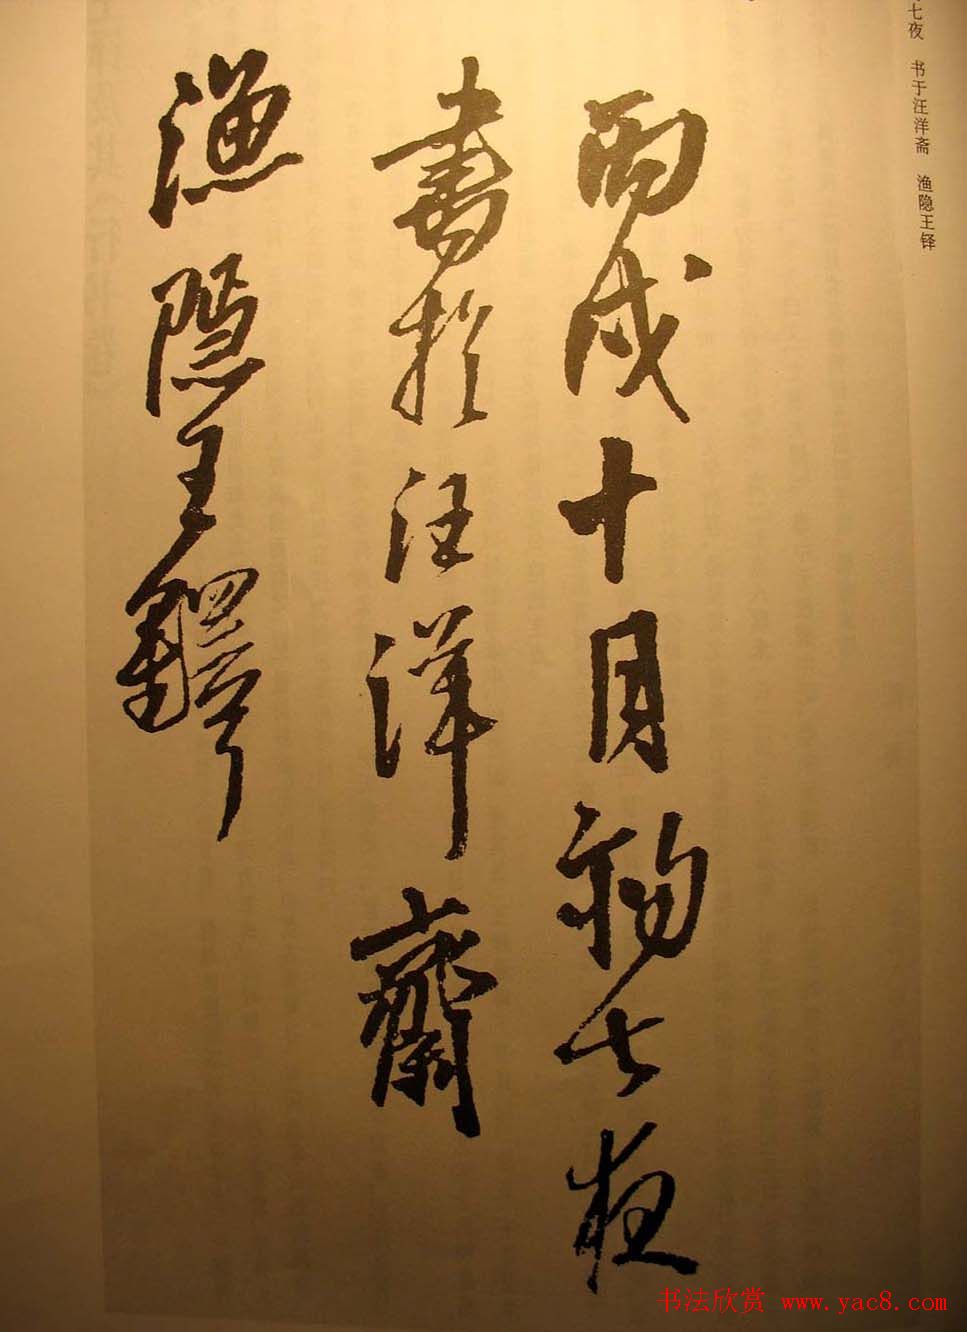 丙戌十月初七夜
書於汪洋齋
漁隱王鐸
七夜 书于汪洋斋 渔隐王铎
书法欣赏 www.yac8.com